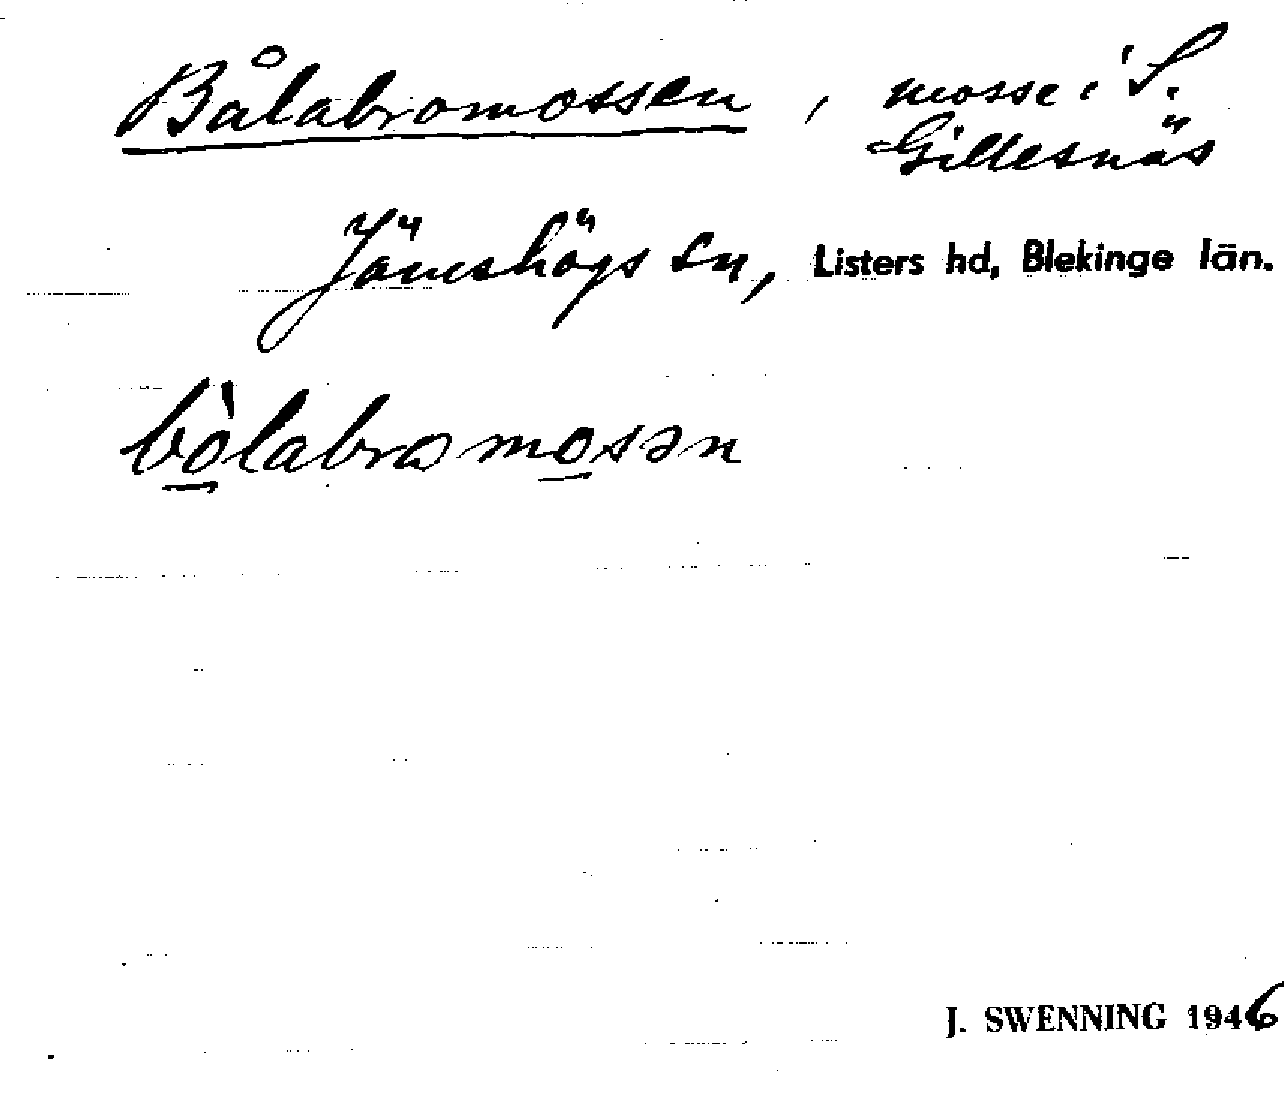 Bålabromossen, mosse i S.
Gillesnäs
Jämshögs sn, Listers hd, Blekinge län.
bòlabromosən
J. SWENNING 1946